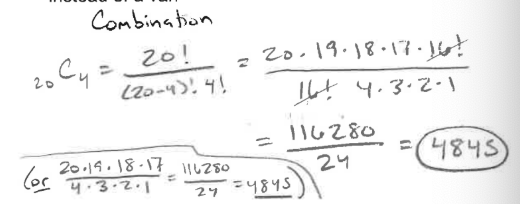 instead of a
Combination
₂₀C₄ = 20! / (20-4)! 4! = 20 · 19 · 18 · 17 · 16! / 16! 4 · 3 · 2 · 1
= 116280 / 24 = 4845
(or 20 · 19 · 18 · 17 / 4 · 3 · 2 · 1 = 116280 / 24 = 4845)